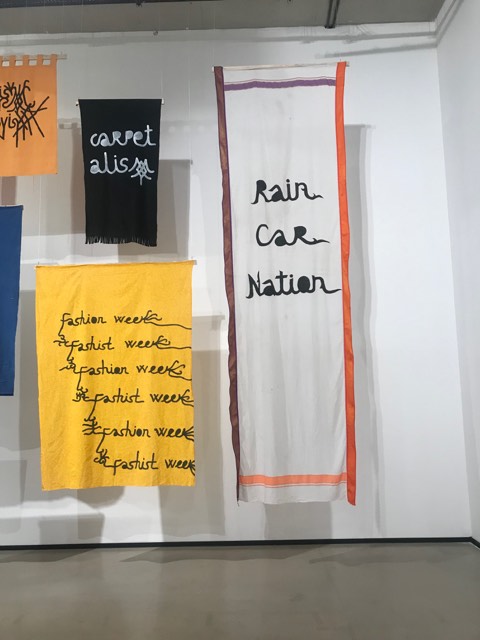 carpet
alism
Rain
Car
Nation
fashion week
fashist week
fashion week
fashist week
fashion week
fashist week